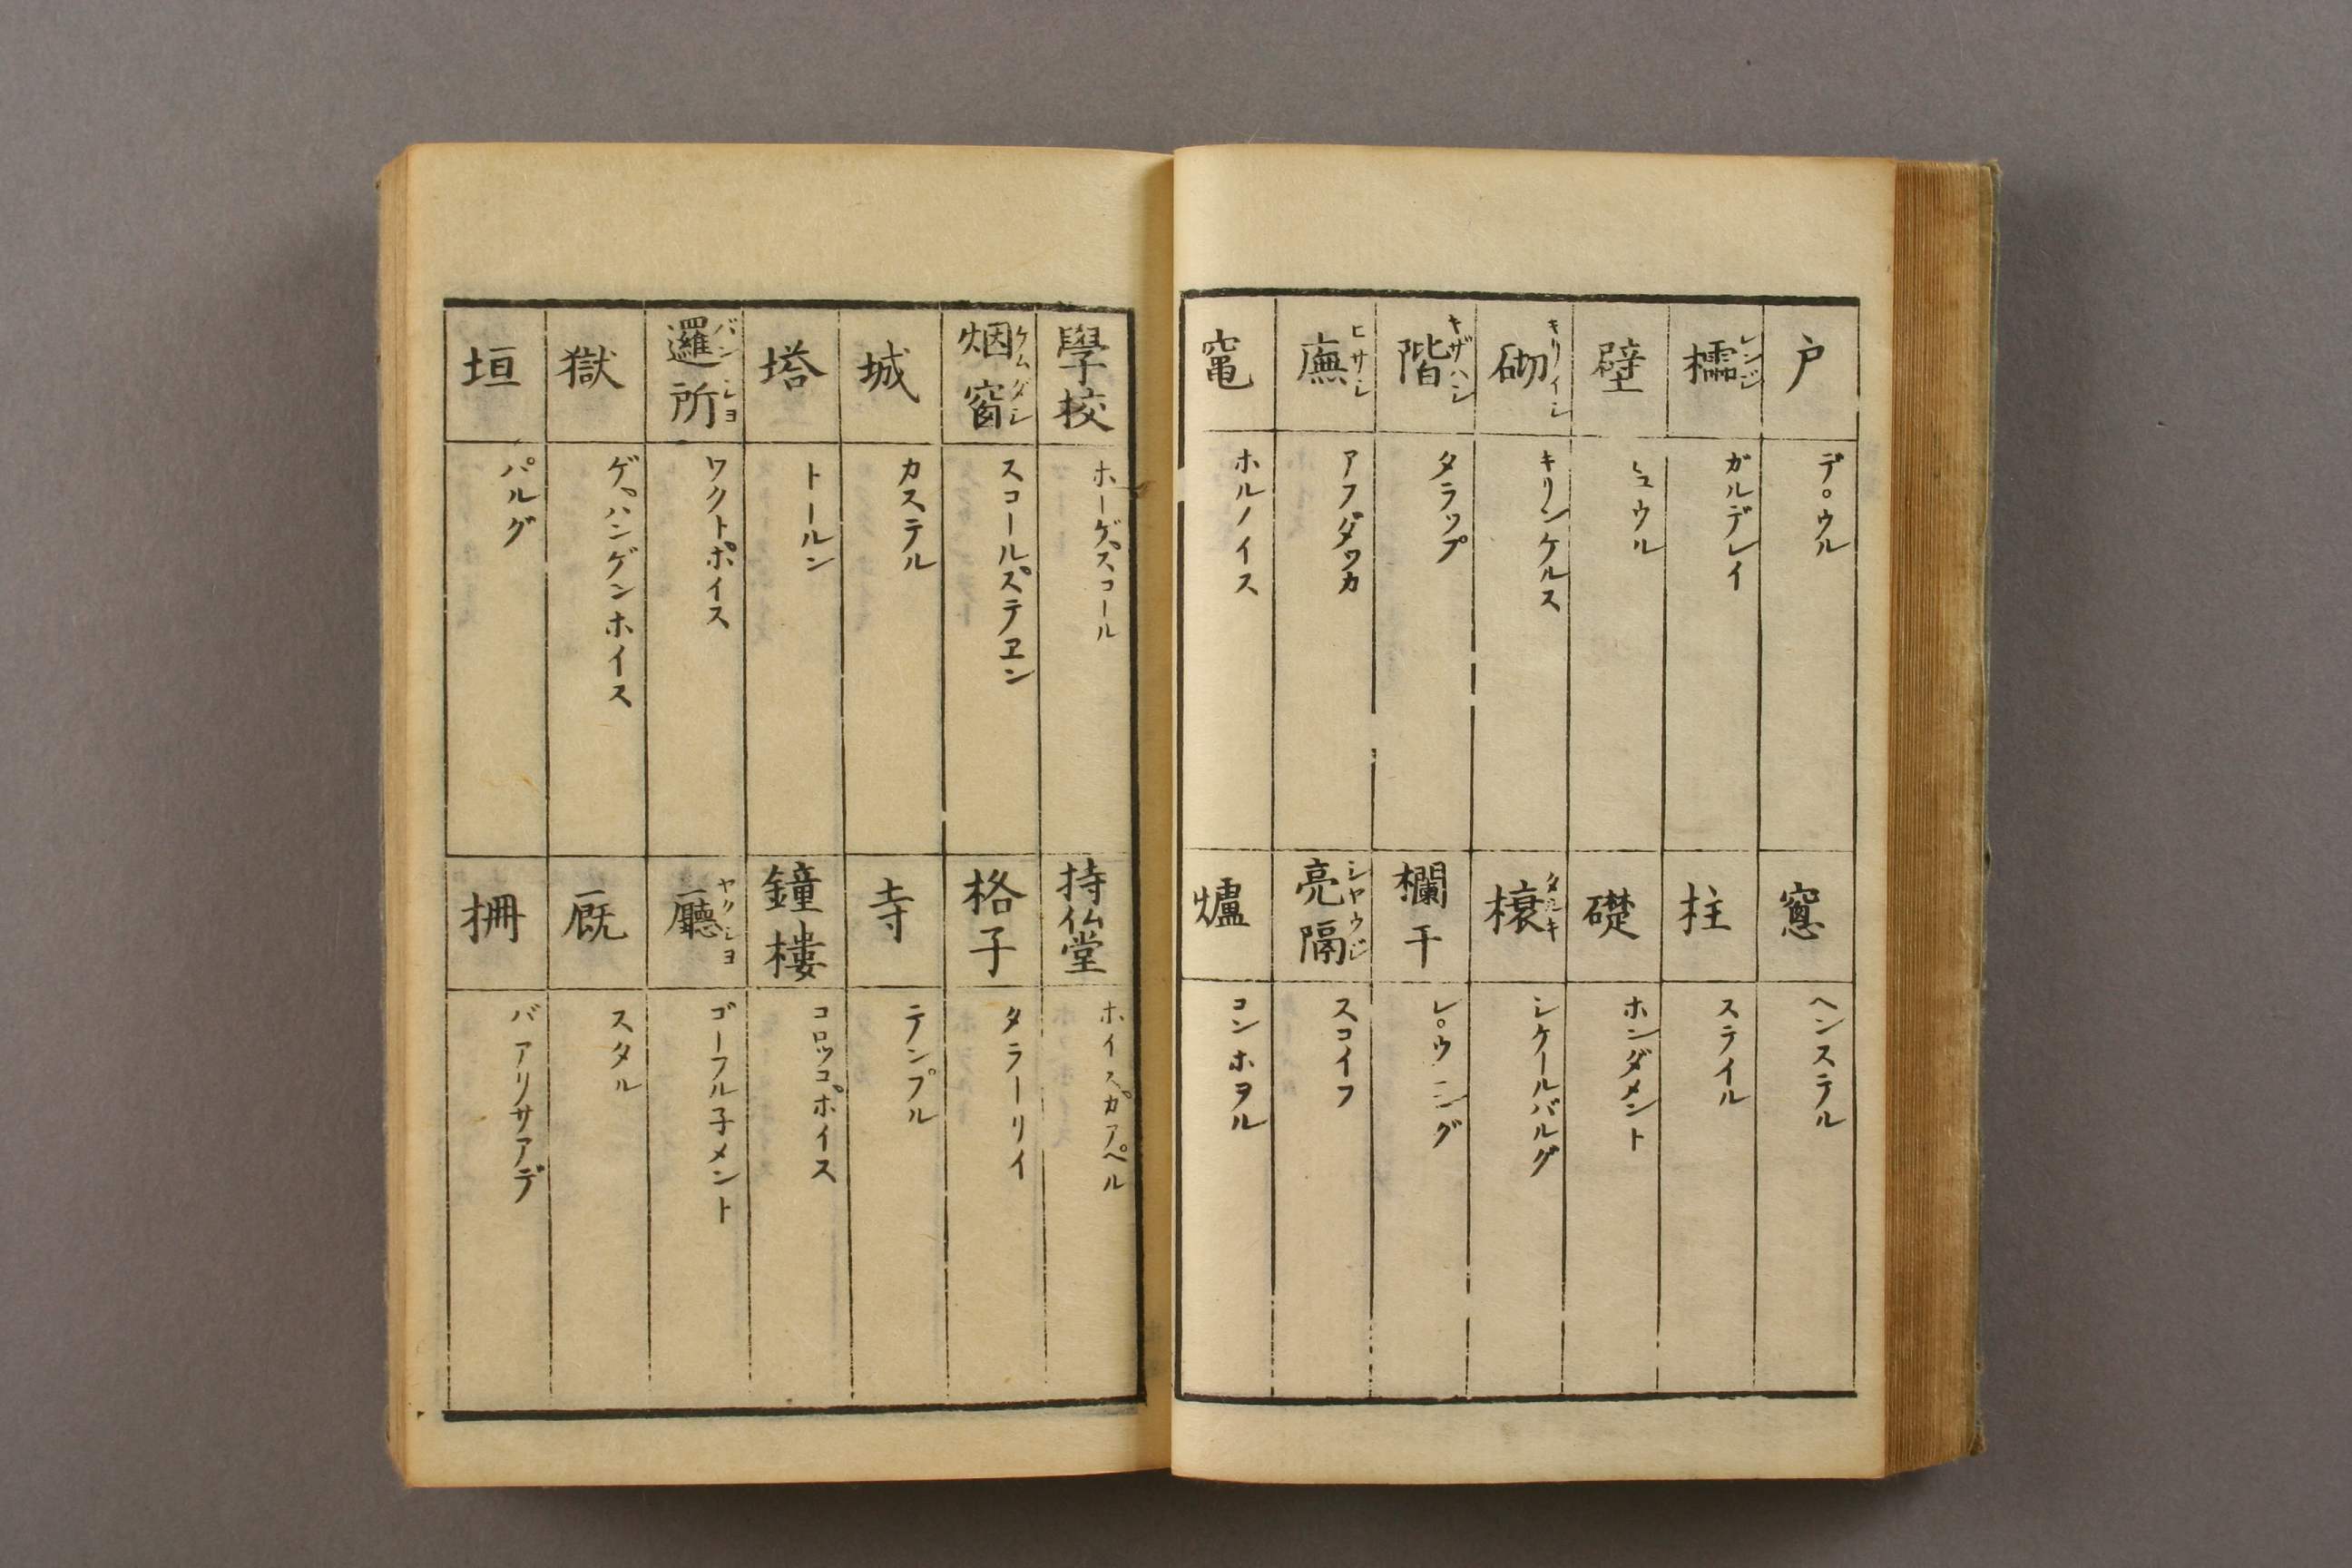 戸 デ。ウル
櫺 レンジ ガルデレイ
壁 ミュウル
砌 キリイシ キリンケルス
階 キザハシ タラップ
廡 ヒサシ アフダッカ
竃 ホルノイス
窻 ヘンステル
柱 ステイル
礎 ホンダメント
榱 タルキ シケールバルグ
欄干 レ。ウニング
亮隔 シヤウジ スコイフ
爐 コンホヲル
學校 ホーゲスコール
烟窗 ケムダシ スコールステヱン
城 カステル
塔 トールン
邏所 バンシヨ ワクトホイス
獄 ゲハンゲンホイス
垣 パルグ
持仏堂 ホイスカアペル
格子 タラーリイ
寺 テンプル
鐘樓 コロッコホイス
廳 ヤクシヨ ゴーフル子メント
厩 スタル
柵 バアリサアデ